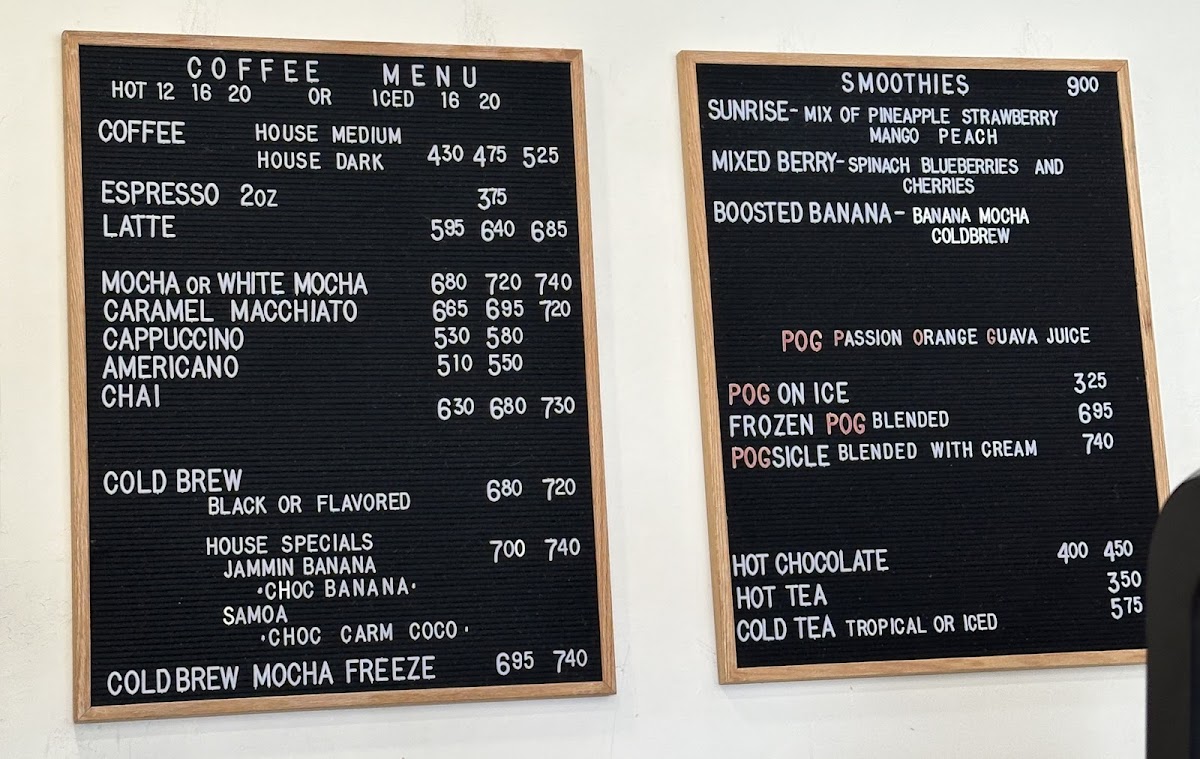 COFFEE MENU
HOT 12 16 20 OR ICED 16 20
COFFEE HOUSE MEDIUM
HOUSE DARK 430 475 525
ESPRESSO 2OZ 375
LATTE 595 640 685
MOCHA OR WHITE MOCHA 680 720 740
CARAMEL MACCHIATO 665 695 720
CAPPUCCINO 530 580
AMERICANO 510 550
CHAI 630 680 730
COLD BREW 680 720
BLACK OR FLAVORED
HOUSE SPECIALS 700 740
JAMMIN BANANA
·CHOC BANANA·
SAMOA
·CHOC CARM COCO·
COLD BREW MOCHA FREEZE 695 740
SMOOTHIES 900
SUNRISE- MIX OF PINEAPPLE STRAWBERRY
MANGO PEACH
MIXED BERRY- SPINACH BLUEBERRIES AND
CHERRIES
BOOSTED BANANA- BANANA MOCHA
COLDBREW
POG PASSION ORANGE GUAVA JUICE
POG ON ICE 325
FROZEN POG BLENDED 695
POGSICLE BLENDED WITH CREAM 740
HOT CHOCOLATE 400 450
HOT TEA 350
COLD TEA TROPICAL OR ICED 575